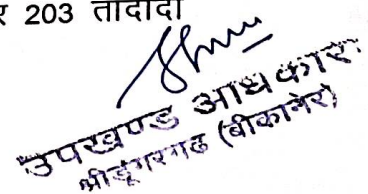 र 203 तादादी
उपखण्ड अधिकारी
श्रीडूंगरगढ (बीकानेर)